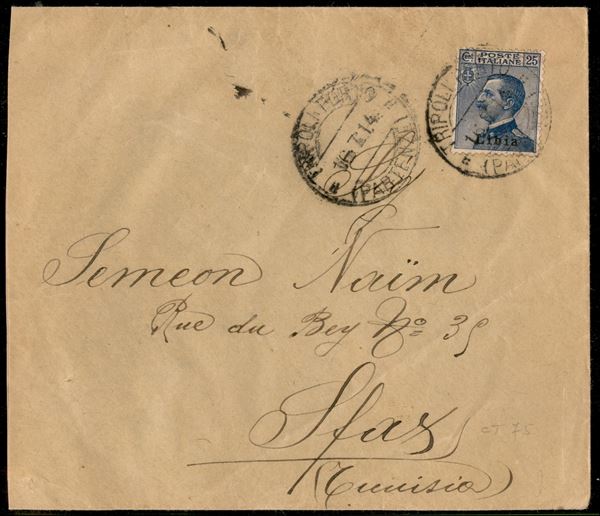 POSTE
ITALIANE
25
Libia
TRIPOLI
(PARTENZ
16.
14
Semeon Naïm
Rue du Bey Nº 35
Sfax
(Tunisia)
CT 75